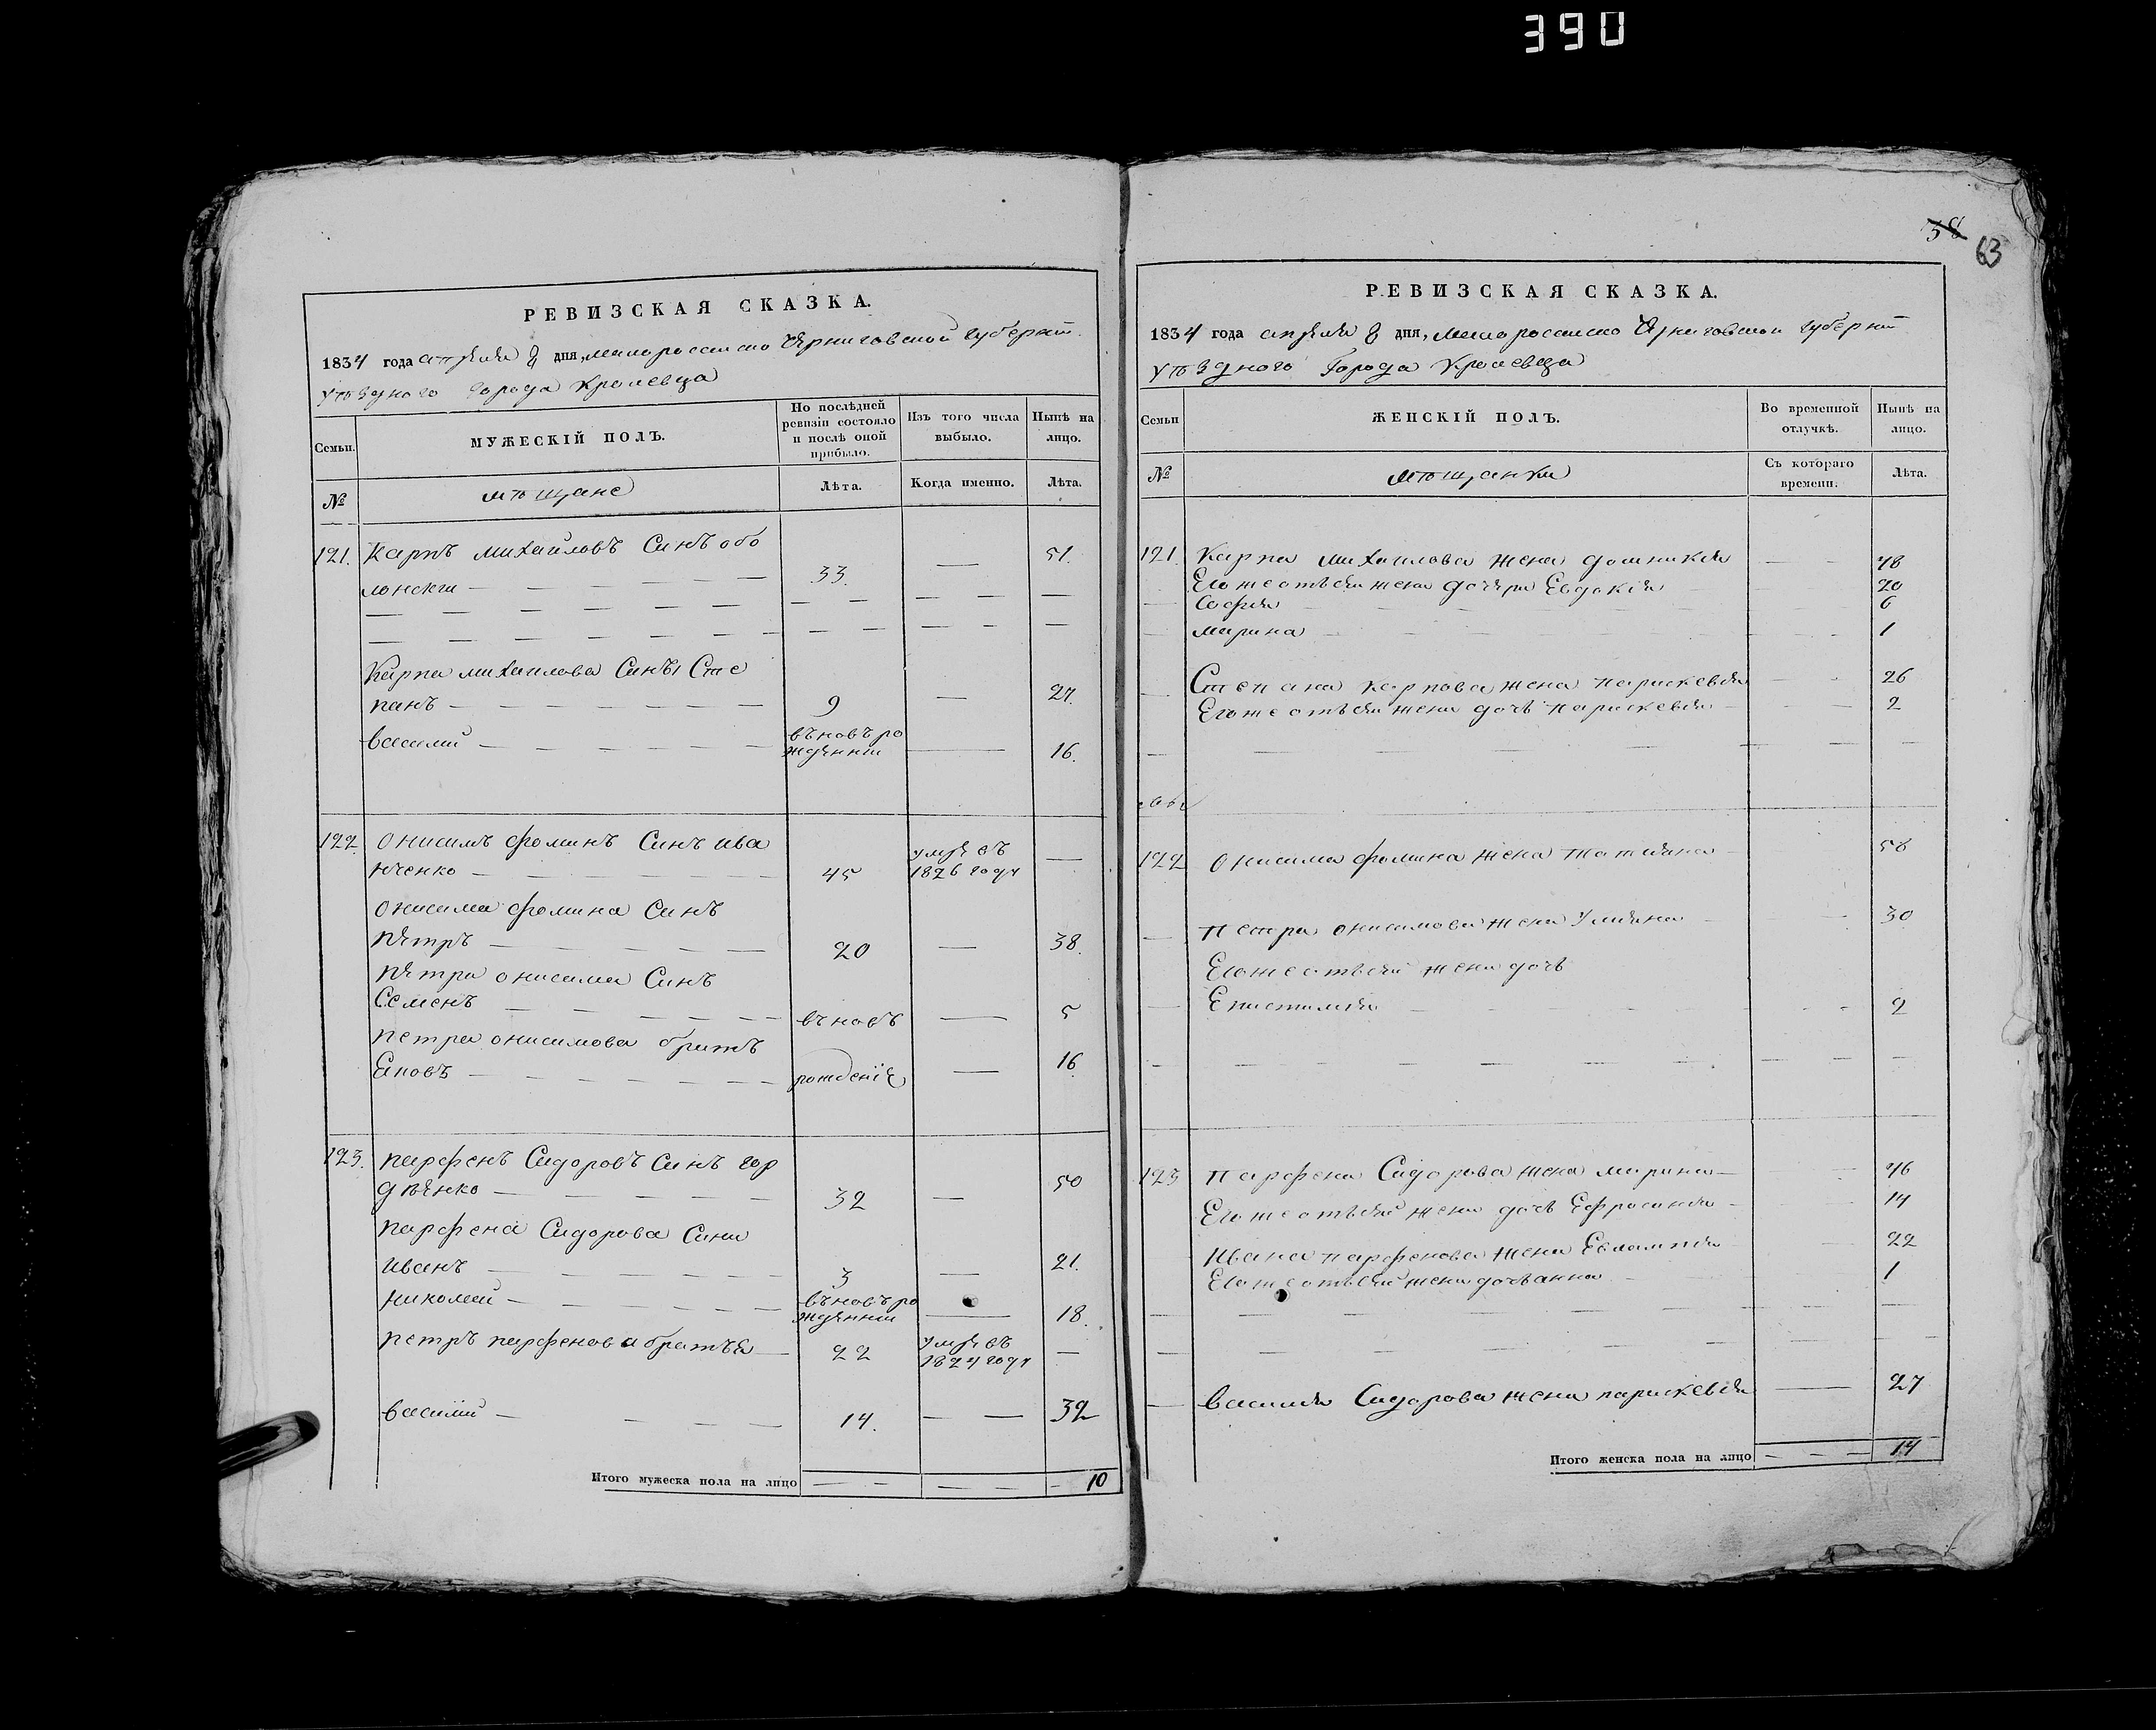 390
38 63
РЕВИЗСКАЯ СКАЗКА.
1834 года апреля 8 дня, малороссийско Черниговской губернии
уѣздного города Кролевца
Семьи. МУЖЕСКІЙ ПОЛЪ. По послѣдней ревизіи состояло и послѣ оной прибыло. Изъ того числа выбыло. Нынѣ на лицо.
№ мѣщане Лѣта. Когда именно. Лѣта.
121. Карпъ михайловъ Синъ обо
лонскии 33. 51.
Карпа михаилова Сины Сте
панъ 9 27.
василий въновъ ро
жденнии 16.
122 Онисимъ фоминъ Синъ ива
нченко 45 умре въ 1826 году
Онисима фомина Синъ
Петръ 20 38.
Петра онисима Синъ
Семенъ въновъ 5
Петра онисимова братъ
Яковъ рожденіе 16
123. парфенъ Сидоровъ Синъ гор
дѣенко 32 50
парфена Сидорова Сини
иванъ 3 21.
николай въновъ ро
жденнии 18.
петръ парфенова братья 22 умре въ 1824 году
василий 14. 32
Итого мужеска пола на лицо 10
РЕВИЗСКАЯ СКАЗКА.
1834 года апреля 8 дня, малороссийско Черниговской губернии
уѣздного Города Кролевца
Семьи ЖЕНСКІЙ ПОЛЪ. Во временной отлучкѣ. Нынѣ на лицо.
№ мѣщанки Съ котораго времени. Лѣта.
121. Карпа михаилова жена домникия 48
Егоже отъсея жены дочери Евдокия 20
София 6
марина 1
Степана карпова жена параскевия 26
Егоже отъсея жены дочъ параскевия 2
122 Онисима фомина жена татияна 58
петра онисимова жена Улияна 30
Егоже отъсей жены дочъ
Епистимия 2
123 парфена Сидорова жена марина 46
Егоже отъсей жены дочъ Ефросиния 14
ивана парфенова жена Евлампия 22
Егоже отъсей жены дочъ анна 1
василия Сидорова жена параскевия 27
Итого женска пола на лицо 14